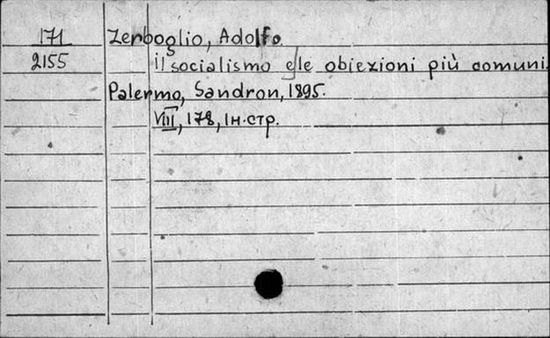 171 Zerboglio, Adolfo.
2155 il socialismo e le obiezioni più comuni.
Palermo, Sandron, 1895.
VIII, 178, 1 н. стр.